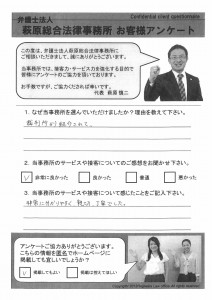 Confidential client questionnaire
弁護士法人
萩原総合法律事務所 お客様アンケート
この度は、弁護士法人萩原総合法律事務所に
ご相談いただきまして、誠にありがとうございます。
当事務所では、接客力・サービス力を強化する目的で
皆様にアンケートのご協力を頂いております。
お手数ですが、ご協力くだされば幸いです。
代表 萩原 慎二
1. なぜ当事務所を選んでいただけましたか？理由を教えて下さい。
裁判所が紹介されて。
2. 当事務所のサービスや接客についてのご感想をお聞かせ下さい。
非常に良かった 良かった 普通 悪かった
3. 当事務所のサービスや接客について感じたことをご記入下さい。
非常に分かりやすく、親切、丁寧でした。
アンケートご協力ありがとうございます。
こちらの情報を匿名でホームページに
掲載しても宜しいでしょうか？
掲載してもよい 掲載は控えてほしい